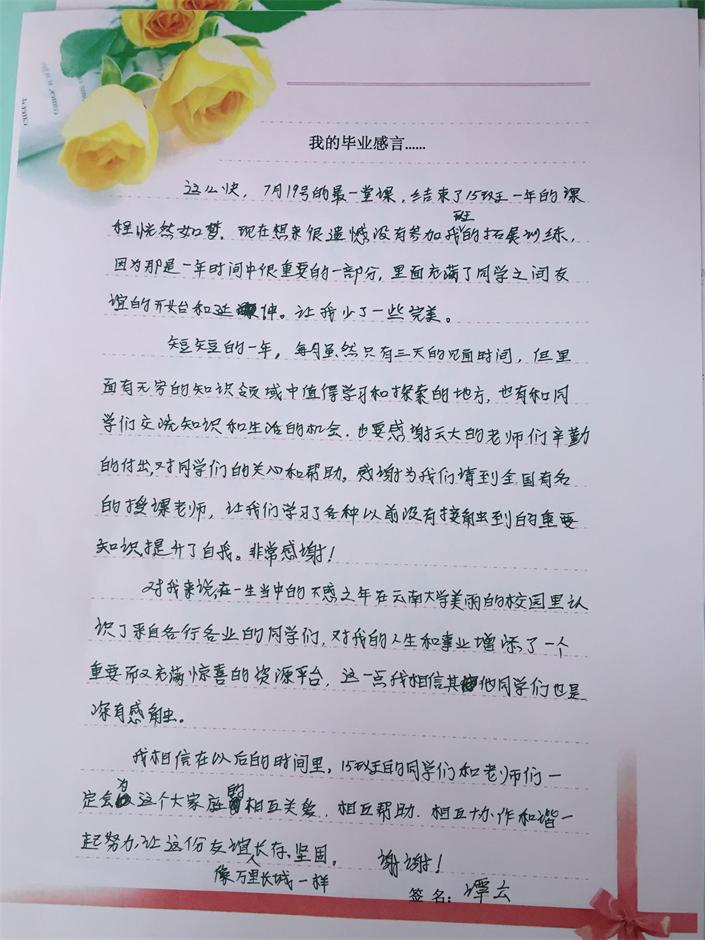 我的毕业感言......
这么快，7月19号的最一堂课，结束了15班王一年的课
程恍然如梦．现在想来很遗憾没有参加我班的拓展训练，
因为那是一年时间中很重要的一部分，里面充满了同学之间友
谊的开始和延伸。让我少了一些完美。
短短的一年，每月虽然只有三天的见面时间，但里
面有无穷的知识领域中值得学习和探索的地方，也有和同
学们交流知识和生活的机会．也要感谢云大的老师们辛勤
的付出，对同学们的关心和帮助。感谢为我们请到全国有名
的授课老师，让我们学习了各种以前没有接触到的重要
知识提升了自我。非常感谢！
对我来说，在一生当中的不惑之年在云南大学美丽的校园里认
识了来自各行各业的同学们，对我的人生和事业增添了一个
重要而又充满惊喜的资源平台，这一点我相信其他同学们也是
深有感触。
我相信在以后的时间里，15班的同学们和老师们一
定会为这个大家庭的相互关爱．相互帮助．相互协作和谐一
起努力，让这份友谊长存、坚固。 谢谢！
像万里长城一样
签名：谭云